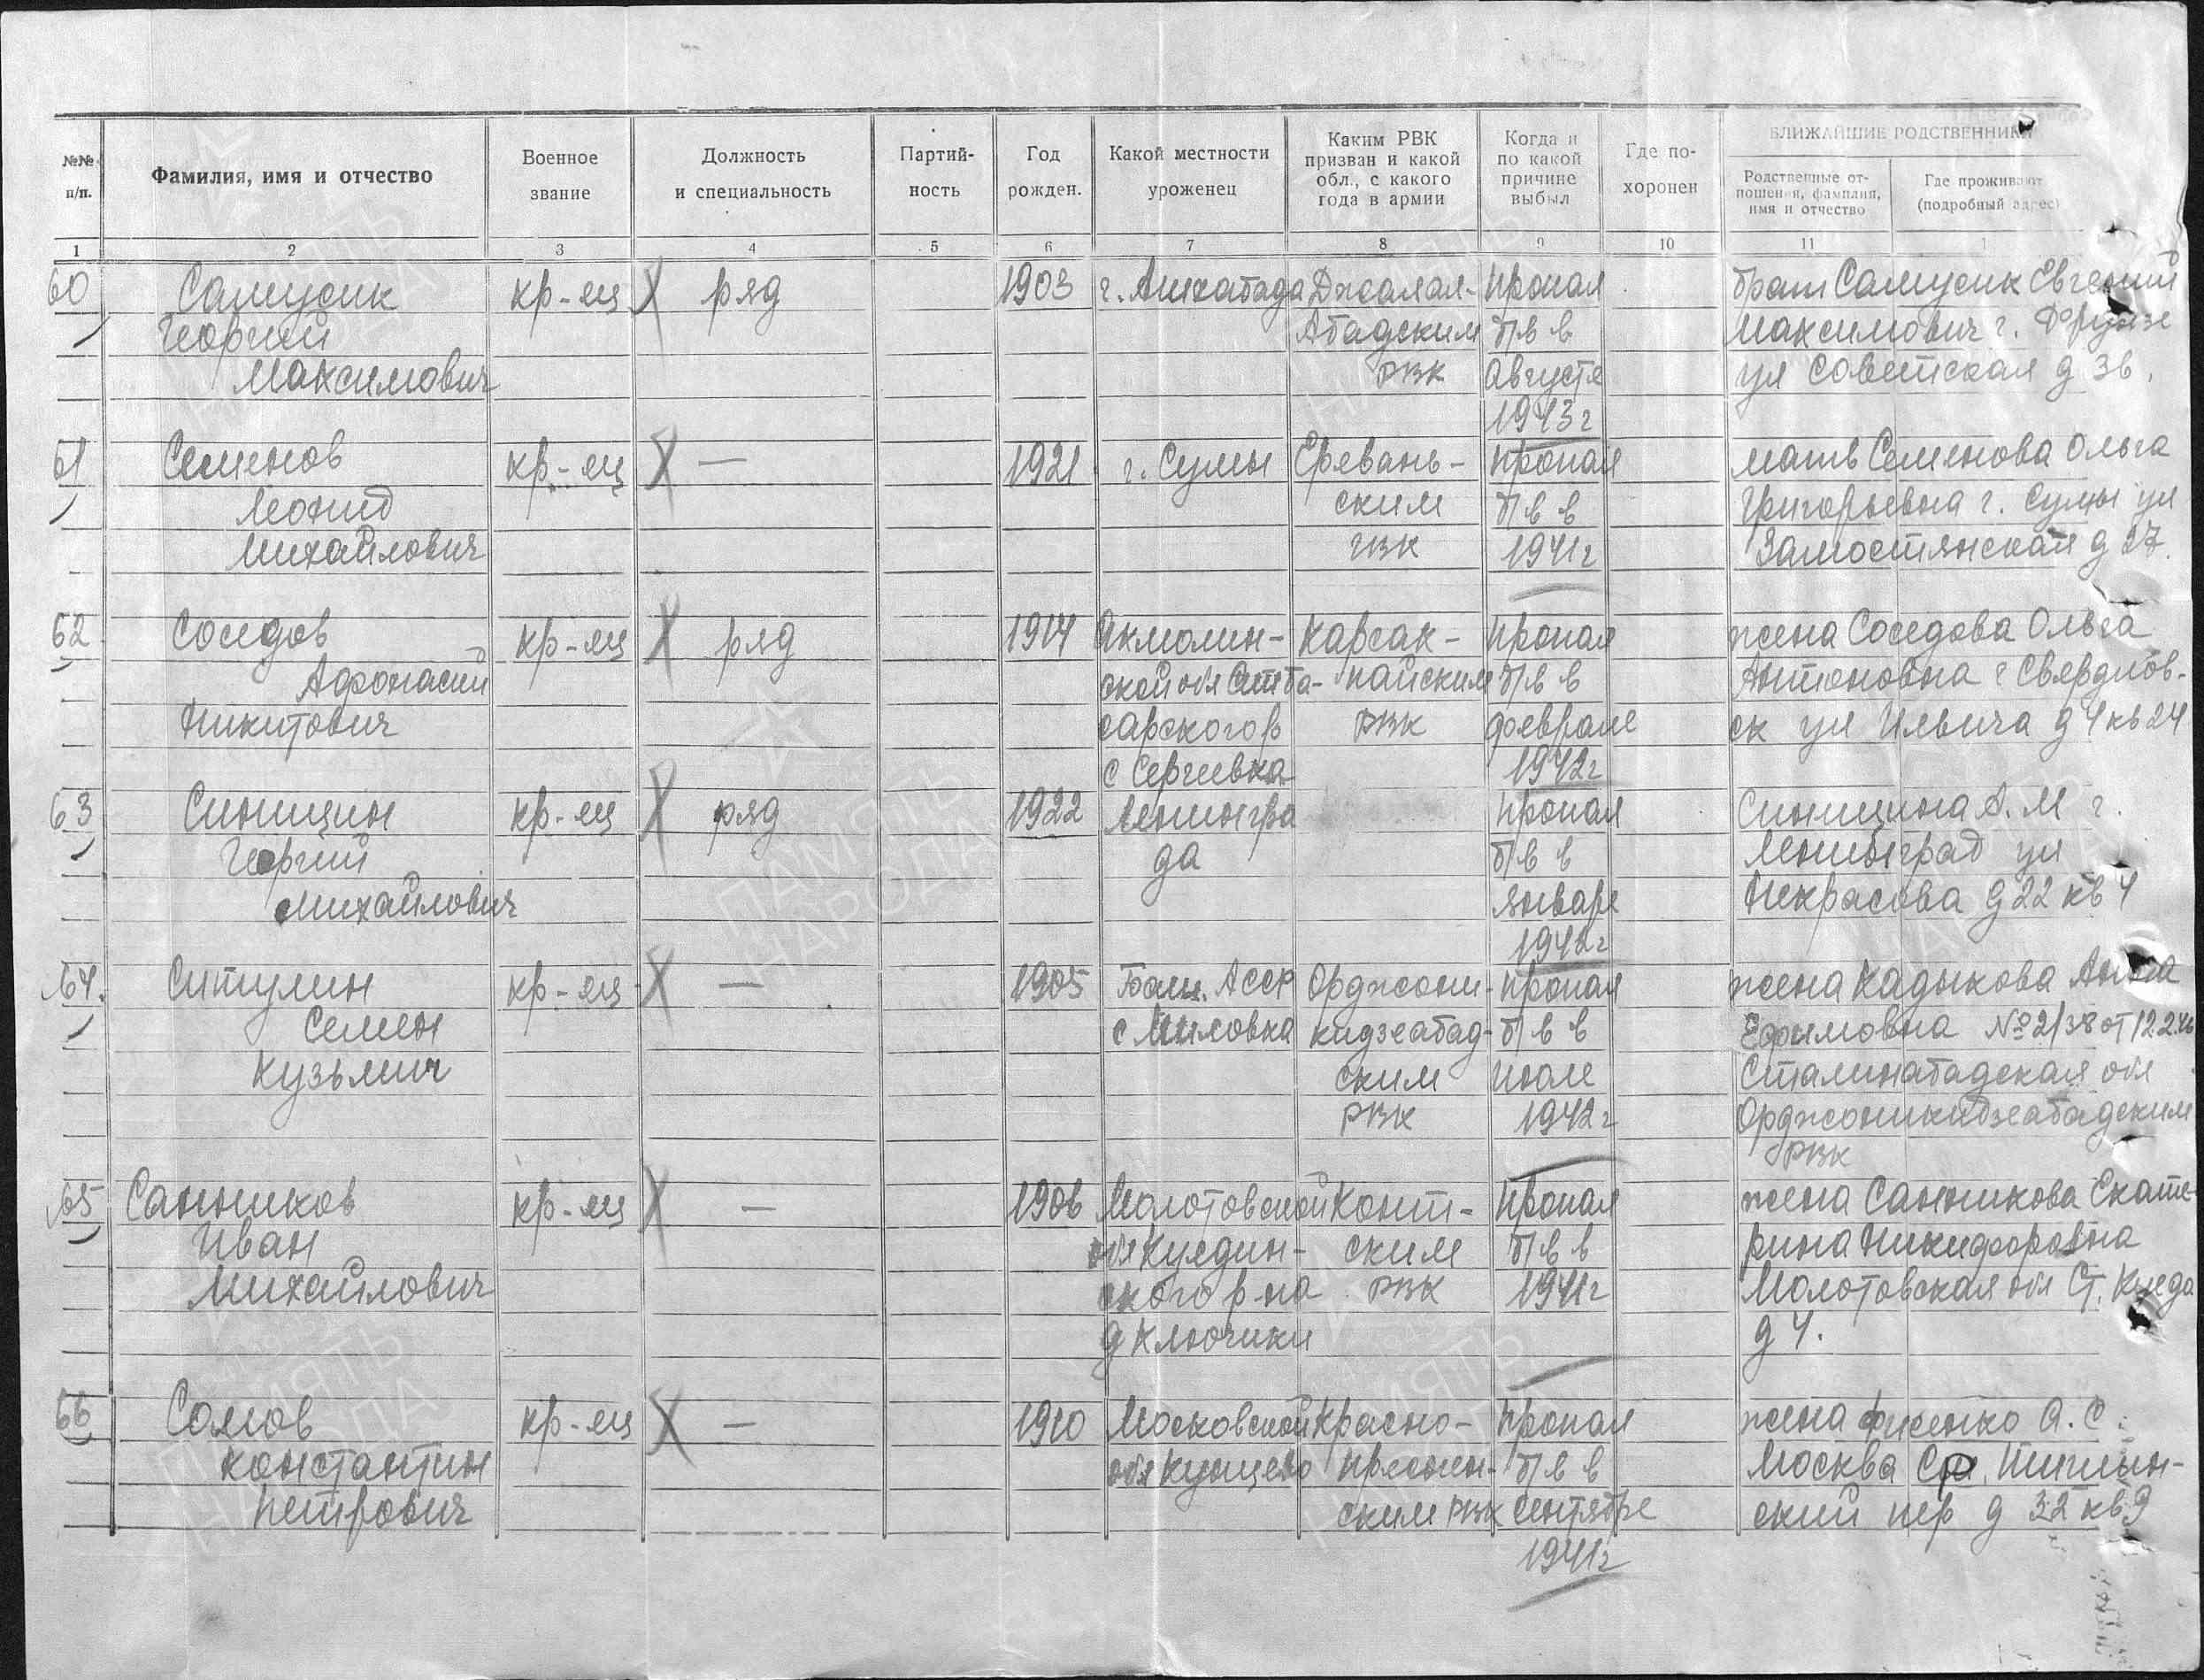 №№ п/п.
Фамилия, имя и отчество
Военное звание
Должность и специальность
Партий-ность
Год рожден.
Какой местности уроженец
Каким РВК призван и какой обл., с какого года в армии
Когда и по какой причине выбыл
Где по-хоронен
БЛИЖАЙШИЕ РОДСТВЕННИКИ
Родственные от-ношения, фамилия, имя и отчество
Где проживают (подробный адрес)
1 2 3 4 5 6 7 8 9 10 11 1
60 Самусик кр-ец X ряд 1903 г. Ашхабада Джалал- пропал брат Самусик Евгений
Георгий Абадским б/в в Максимович г. Фрунзе
Максимович РВК августе ул Советская д 36.
1943г
61 Семенов кр-ец X — 1921 г. Сумы Еревань- пропал мать Семенова Ольга
Леонид ским б/в в Григорьевна г. Сумы ул
Михайлович ГВК 1941г Замостянская д 27.
62 Соседов кр-ец X ряд 1914 Акмолин- Карсак- пропал жена Соседова Ольга
Афонасий ской обл пайским б/в в Антоновна г Свердлов-
Никитович сарского р РВК феврале ск ул Ильича д 4 кв 24
с Сергеевка 1942г
63 Синицин кр-ец X ряд 1922 Ленингра пропал Синицина А. М г.
Георгий да б/в в Ленинград ул
Михайлович январе Некрасова д 22 кв 4
1942г
64. Ситулин кр-ец X — 1905 Баш. АССР Орджони- пропал жена Кадыкова Анна
Семен с Миловка кидзеабад- б/в в Ефимовна № 2/38 от 12.2.46
Кузьмич ским июле Сталинабадская обл
РВК 1942г Орджоникидзеабадским
РВК
65 Санников кр-ец X — 1906 Молотовской пропал жена Санникова Екате-
Иван обл Куедин- ским б/в в рина Никифоровна
Михайлович ского р-на РВК 1941г Молотовская обл Ст. Куеда
д Ключики д 4.
66 Сомов кр-ец X — 1910 Московской Красно- пропал жена А. С.
Константин обл Кунцево преснен- б/в в Москва Ср. Тишин-
Петрович ским РВК сентябре ский пер д 32 кв 9
1941г
ПАМЯТЬ
НАРОДА